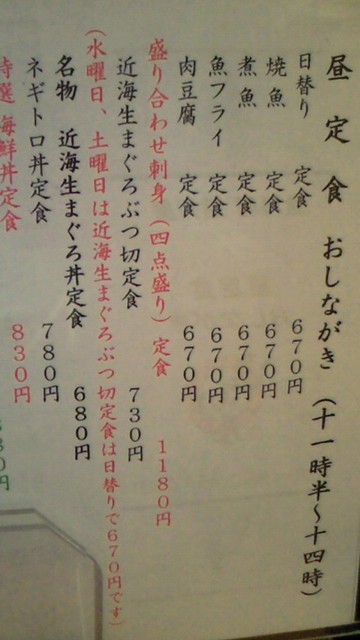 昼定食 おしながき (十一時半～十四時)
日替り 定食 670円
焼魚 定食 670円
煮魚 定食 670円
魚フライ 定食 670円
肉豆腐 定食 670円
盛り合わせ刺身(四点盛り)定食 1180円
近海生まぐろぶつ切定食 730円
(水曜日、土曜日は近海生まぐろぶつ切定食は日替りで670円です)
名物 近海生まぐろ丼定食 680円
ネギトロ丼定食 780円
特選 海鮮丼定食 830円